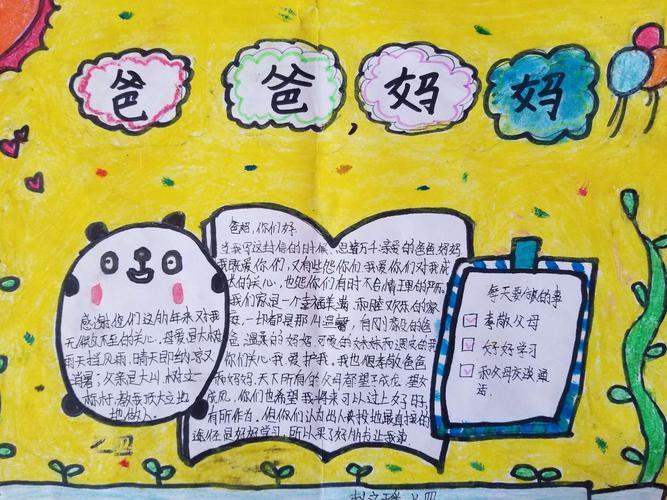 爸爸,妈妈
感谢你们这些年来对我
无微不至的关心,母爱是大树
雨天挡风雨,晴天即纳凉又
当暑;父亲是大山,树立
标杆,教我顶天立地
地做人。
爸妈,你们好:
当我写这封信的时候,思绪万千亲爱的爸爸妈妈
我既爱你们,又有些怨你们,我爱你们对我成
长的关心,也怨你们有时不合情理的严厉
我们家是一个幸福美满、和睦欢乐的家
庭,一切都是那么温馨,有风
的爸
爸、温柔的妈妈可爱的妹妹和调皮的我
你们关心我 爱护我,我也很孝敬爸爸
和妈妈,天下所有的父母都望子成龙,望女
成凤,你们也希望我将来可以过上好日子,
有所作为,但你们认为出人头地最直接的
途径是好好学习,所以来了好
每天要做的事
孝敬父母
好好学习
和父母交谈通
话。